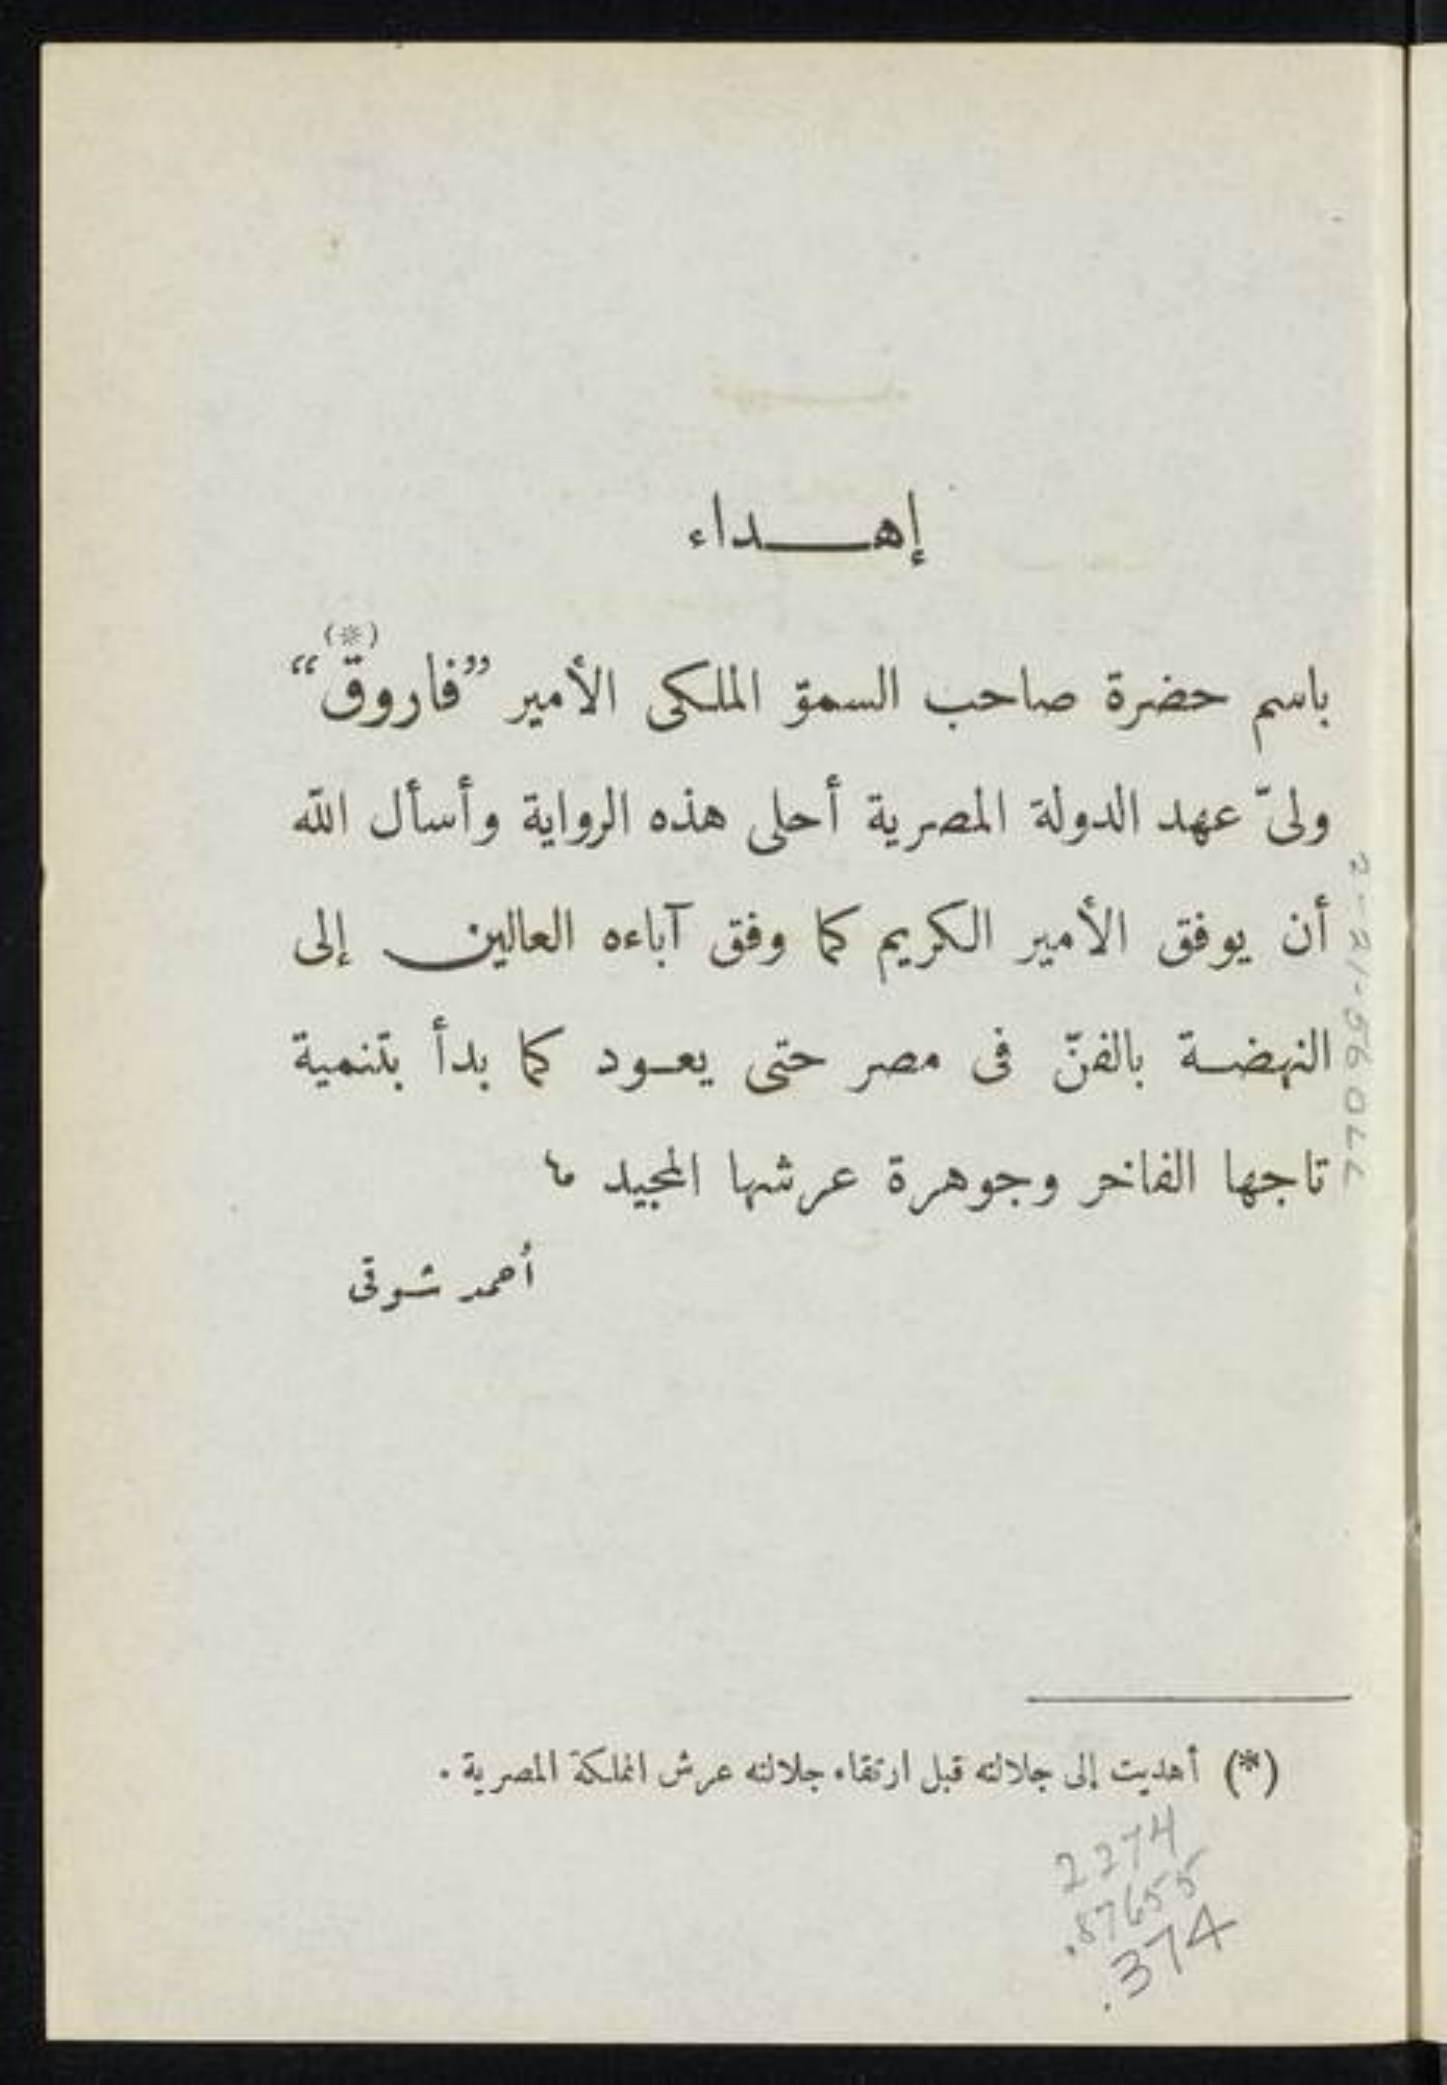 إهـــداء
باسم حضرة صاحب السموّ الملكى الأمير ”فاروق“ (*)
ولىّ عهد الدولة المصرية أحلى هذه الرواية وأسأل الله
أن يوفق الأمير الكريم كما وفق آباءه العالين إلى
النهضة بالفنّ فى مصر حتى يعود كما بدأ بتنمية
تاجها الفاخر وجوهرة عرشها المجيد
أحمد شوقى
(*) أهديت إلى جلالته قبل ارتقاء جلالته عرش المملكة المصرية .
2274
.87655
.374